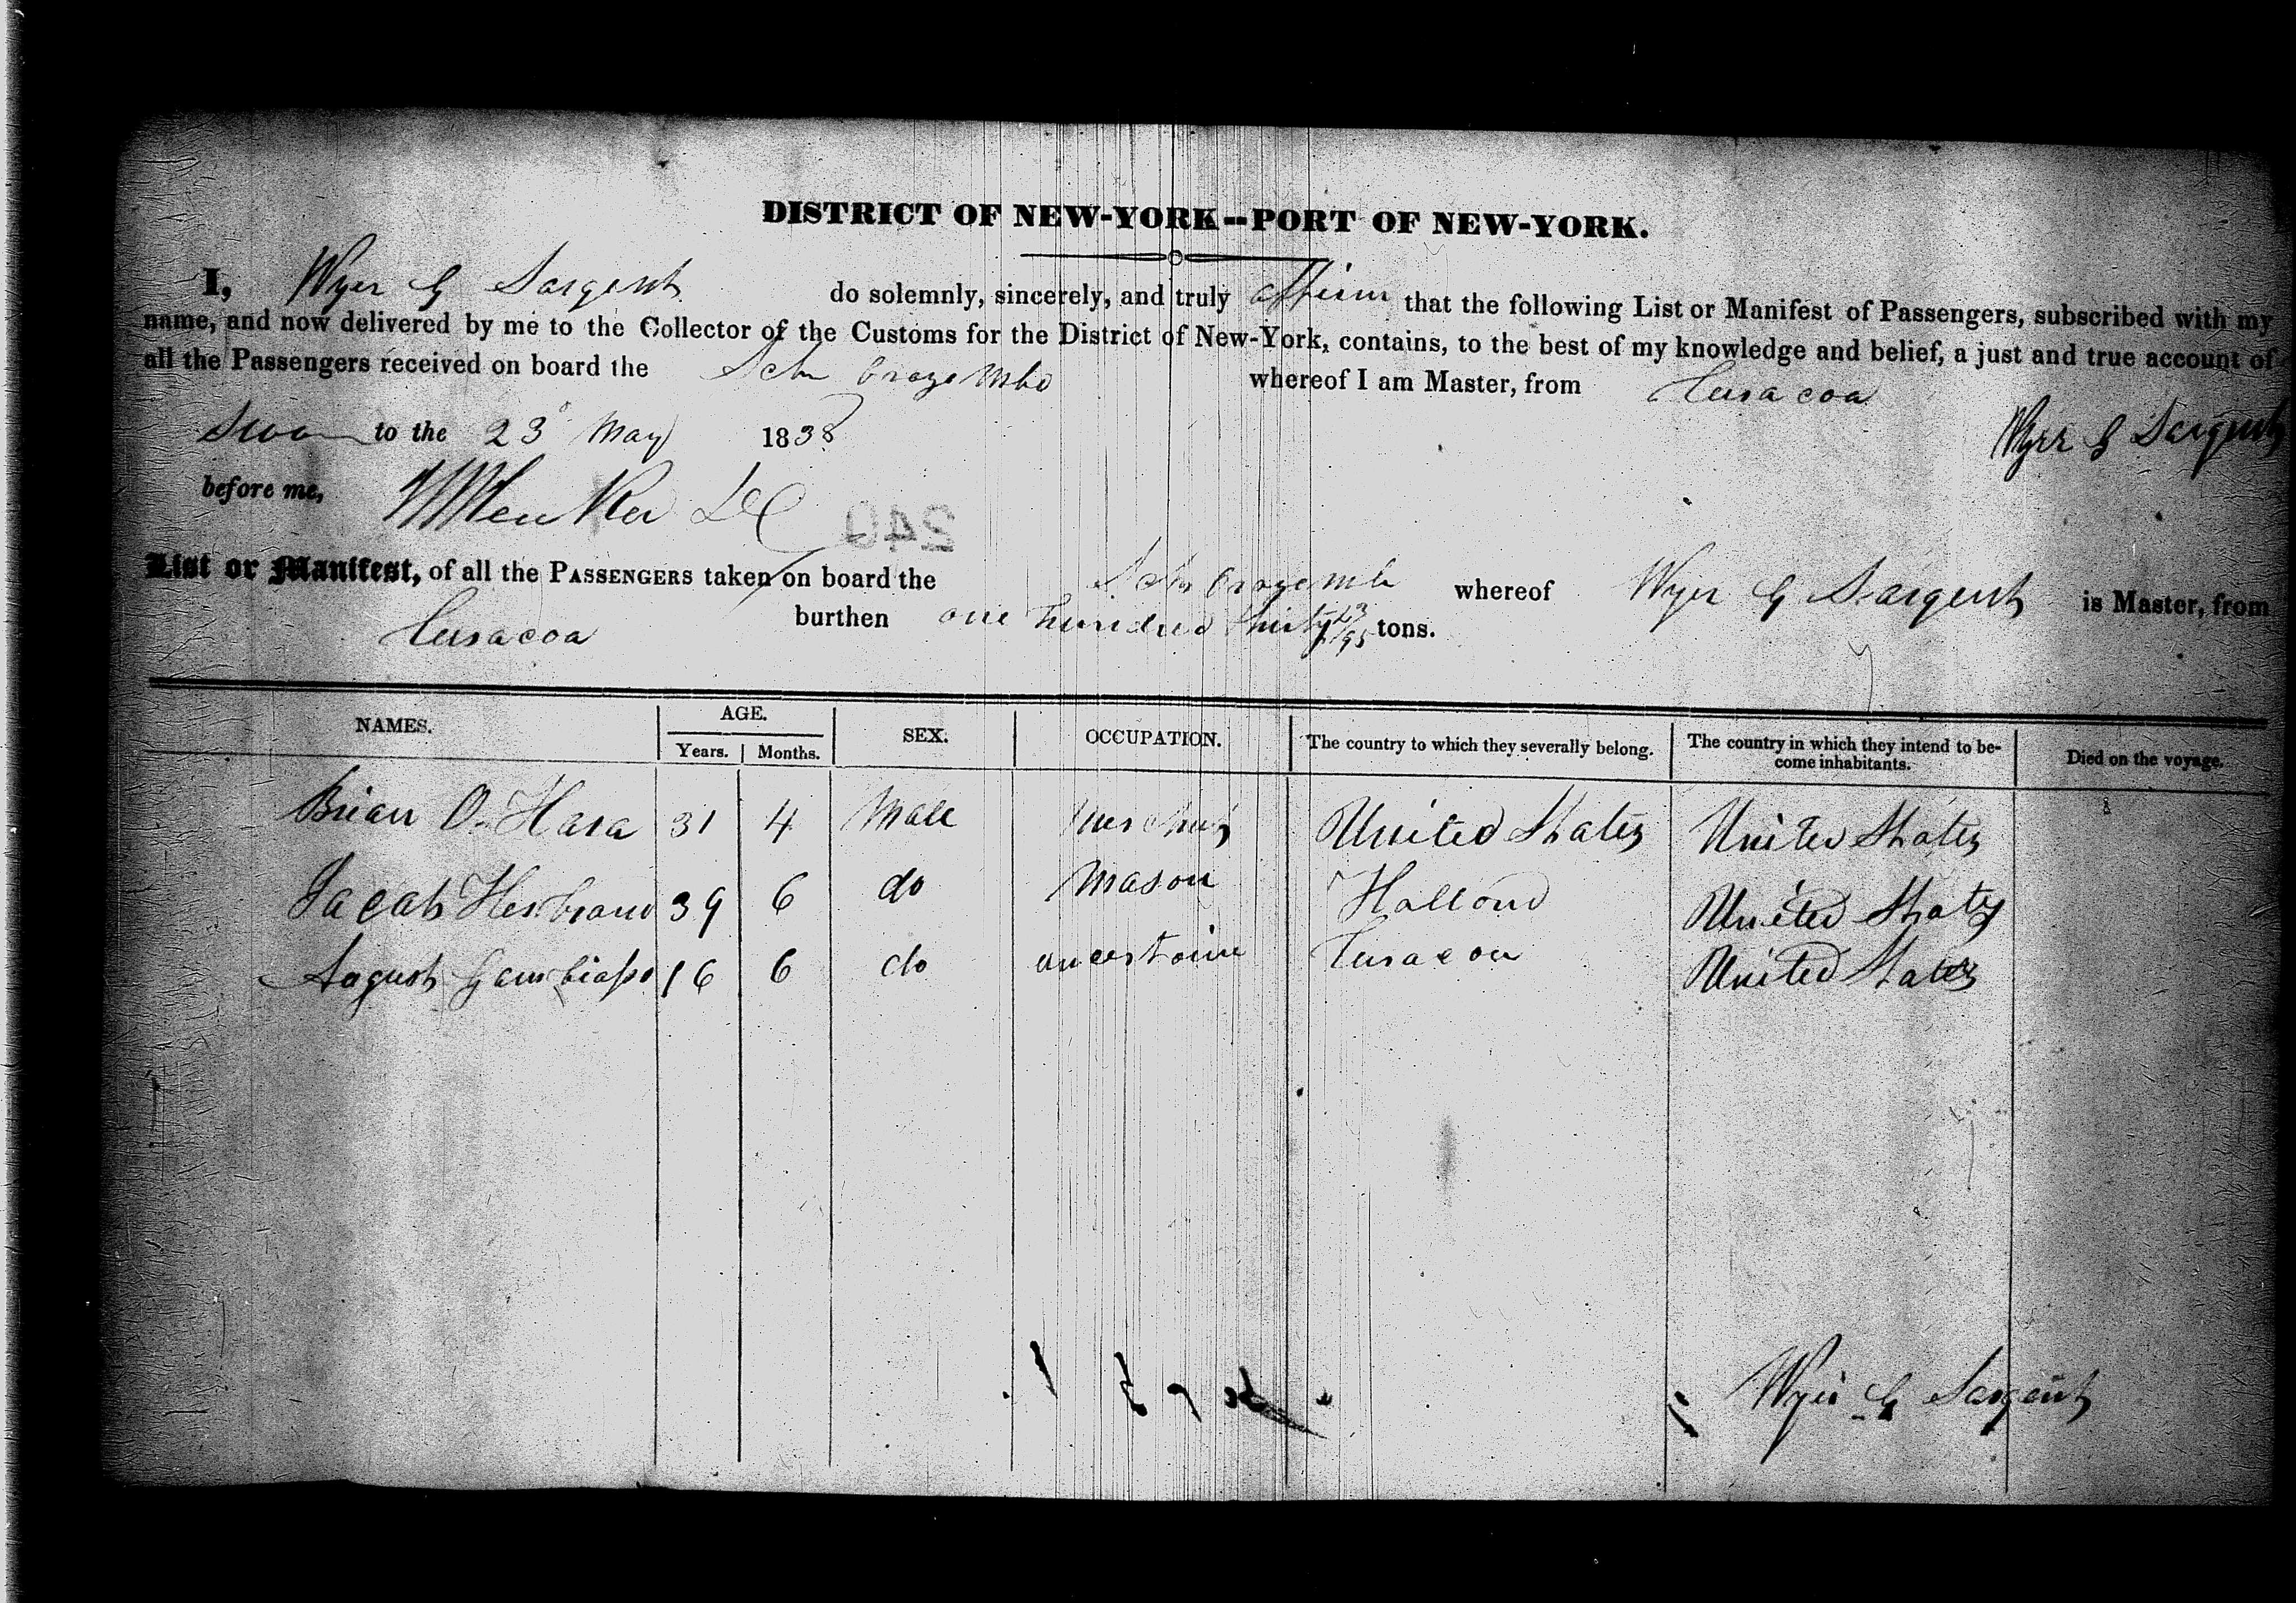 DISTRICT OF NEW-YORK--PORT OF NEW-YORK.
I, Wyer G Sargent do solemnly, sincerely, and truly affirm that the following List or Manifest of Passengers, subscribed with my
name, and now delivered by me to the Collector of the Customs for the District of New-York, contains, to the best of my knowledge and belief, a just and true account of
all the Passengers received on board the Schr whereof I am Master, from Curacoa
Sworn to the 23 May 1838 Wyer G Sargent
before me,
240
List or Manifest, of all the PASSENGERS taken on board the Schr whereof Wyer G Sargent is Master, from
Curacoa burthen one hundred thirty 23/95 tons.
NAMES. AGE. SEX. OCCUPATION. The country to which they severally belong. The country in which they intend to be-
come inhabitants. Died on the voyage.
Years. Months.
Brian O. Hara 31 4 Male United States United States
Jacob 39 6 do Mason Holland United States
August 16 6 do uncertaine Curacoa United States
Wyer G Sargent